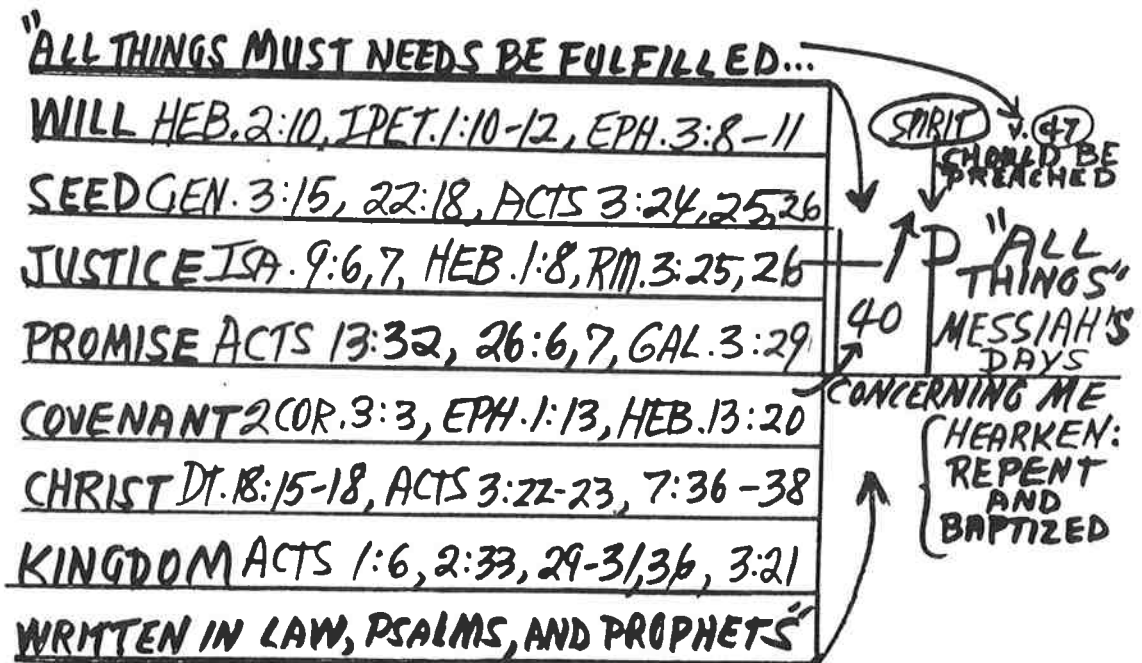 "ALL THINGS MUST NEEDS BE FULFILLED...
WILL HEB. 2:10, I PET. 1:10-12, EPH. 3:8-11
SEED GEN. 3:15, 22:18, ACTS 3:24, 25, 26
JUSTICE ISA. 9:6,7, HEB. 1:8, RM. 3:25, 26
PROMISE ACTS 13:32, 26:6,7, GAL. 3:29
COVENANT 2 COR. 3:3, EPH. 1:13, HEB. 13:20
CHRIST DT. 18:15-18, ACTS 3:22-23, 7:36-38
KINGDOM ACTS 1:6, 2:33, 29-31,36, 3:21
WRITTEN IN LAW, PSALMS, AND PROPHETS"
SPIRIT
v. 47
SHOULD BE
PREACHED
40
P
"ALL
THINGS"
MESSIAH'S
DAYS
CONCERNING ME
HEARKEN:
REPENT
AND
BAPTIZED